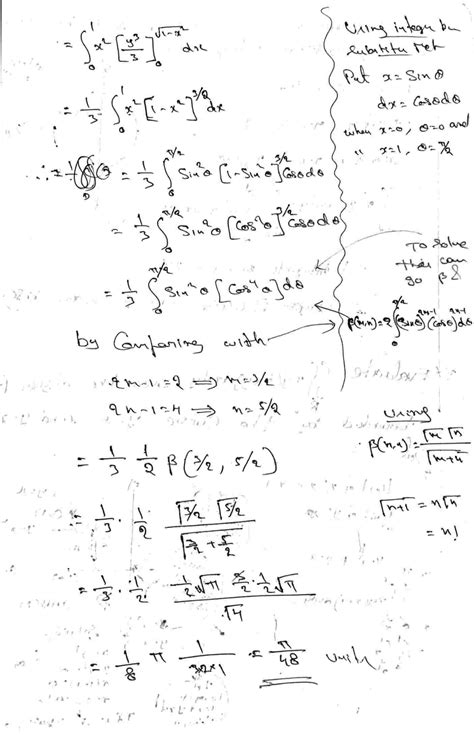 = ∫₀¹ x² [y³/3]₀^√(1-x²) dx
= 1/3 ∫₀¹ x² [1-x²]^3/2 dx
= 1/3 ∫₀^π/2 Sin²θ [1-Sin²θ]^3/2 Cosθdθ
= 1/3 ∫₀^π/2 Sin²θ [Cos²θ]^3/2 Cosθdθ
= 1/3 ∫₀^π/2 Sin²θ [Cos⁴θ] dθ
by Comparing with
2m-1=2 ⟹ m=3/2
2n-1=4 ⟹ n=5/2
= 1/3 1/2 β(3/2, 5/2)
= 1/3 · 1/2 Γ3/2 Γ5/2 / Γ(3/2+5/2)
= 1/3 · 1/2 (1/2 √π 3/2 · 1/2 √π) / Γ4
= 1/8 π 1/(3×2×1) = π/48 units
Using
Put x = Sinθ
dx = Cosθdθ
when x=0, θ=0 and
" x=1, θ=π/2
To solve
this can
go β
β(m,n)=2∫₀^π/2 (Sinθ)^2m-1 (Cosθ)^2n-1 dθ
Using
β(m,n) = Γm Γn / Γ(m+n)
Γ(n+1) = nΓn
= n!